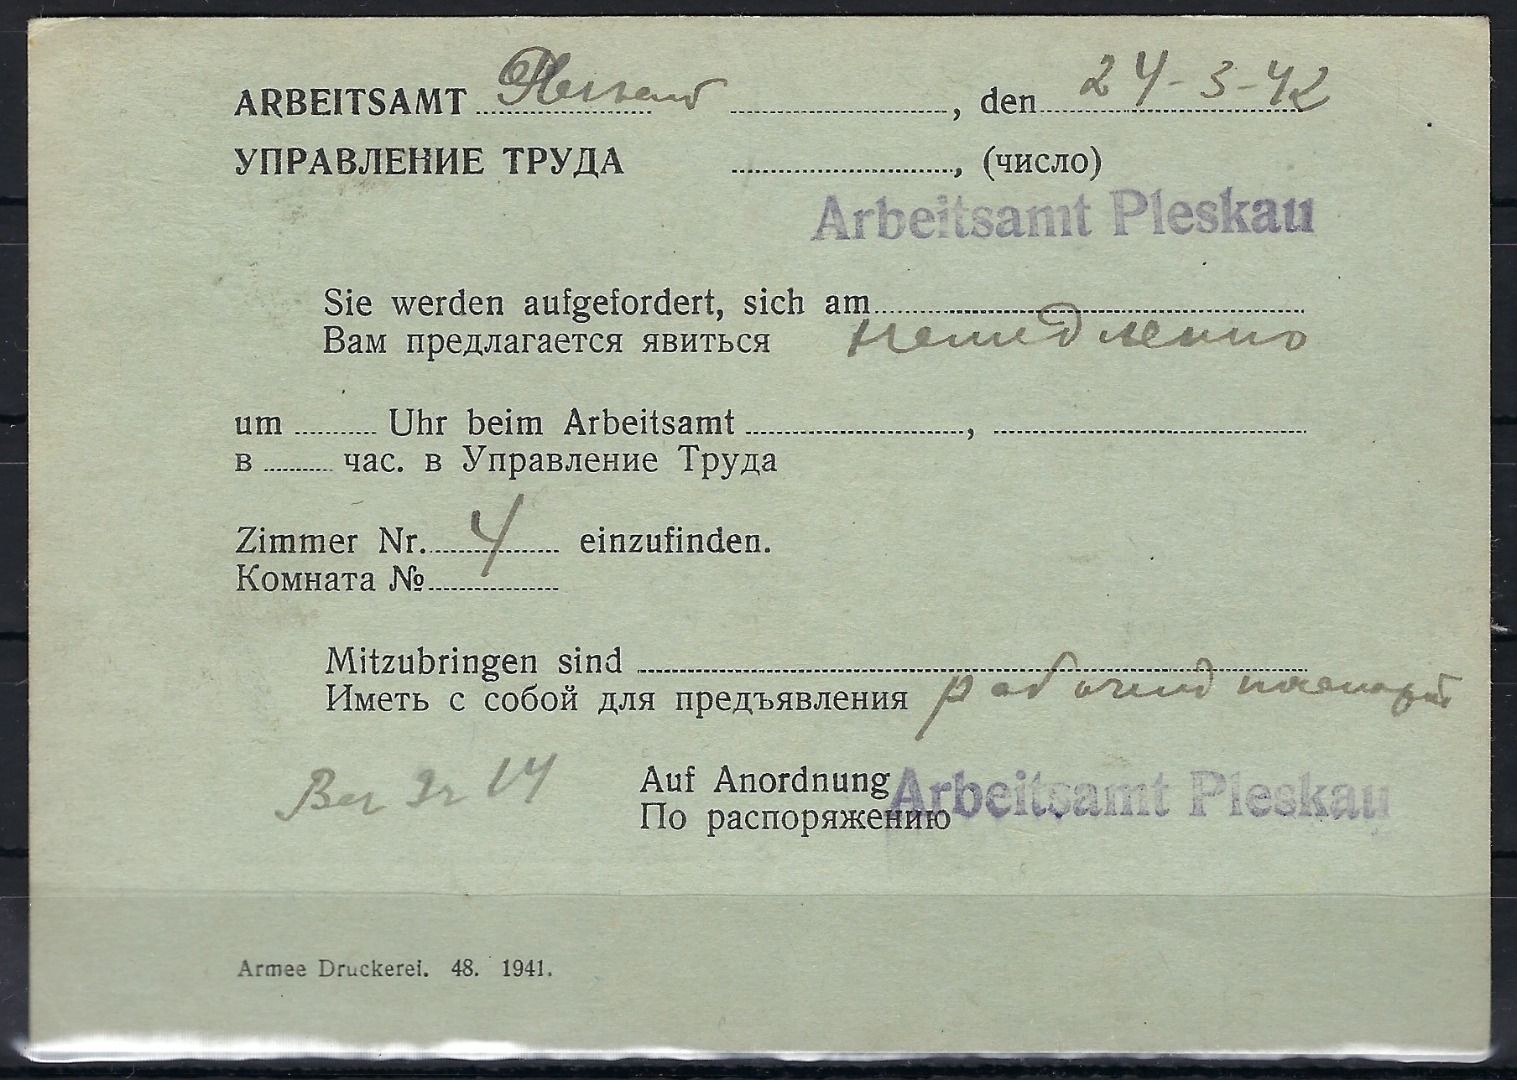 ARBEITSAMT Pleskau, den 24-3-42
УПРАВЛЕНИЕ ТРУДА, (число)
Arbeitsamt Pleskau
Sie werden aufgefordert, sich am
Вам предлагается явиться немедленно
um Uhr beim Arbeitsamt,
в час. в Управление Труда
Zimmer Nr. 4 einzufinden.
Комната №
Mitzubringen sind
Иметь с собой для предъявления рабочий паспорт
14 Auf Anordnung Arbeitsamt Pleskau
По распоряжению
Armee Druckerei. 48. 1941.